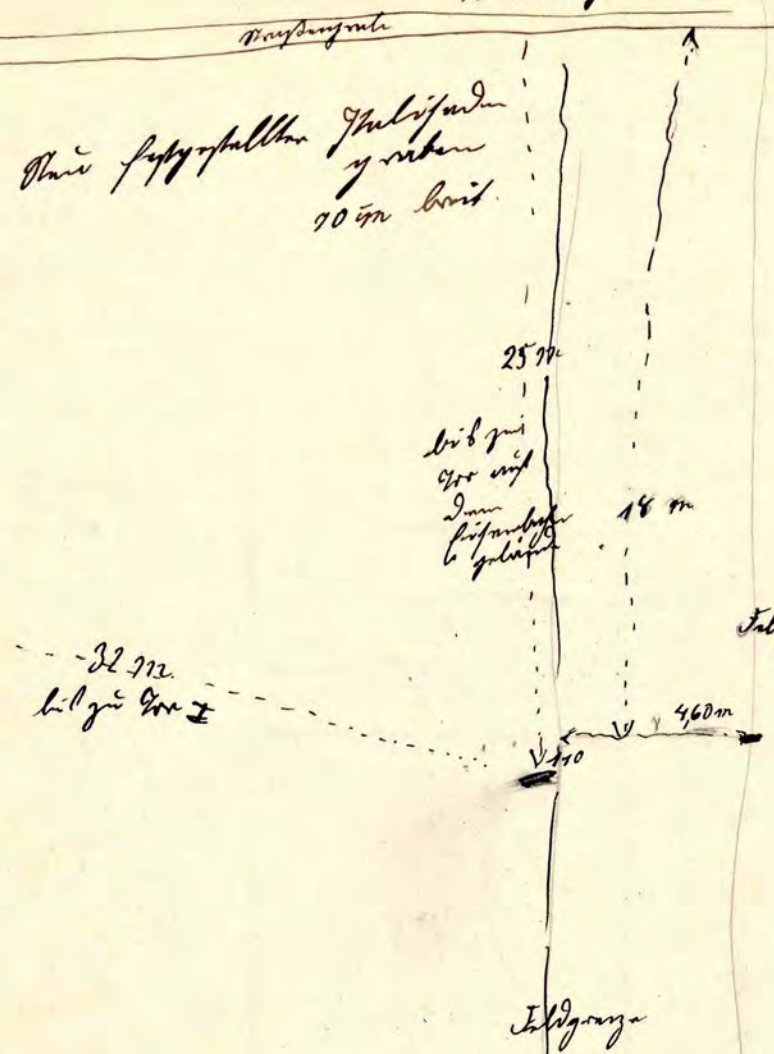 Straßengrabe
Neu festgestellter Palisaden
graben
70 cm breit.
25 m
bis zu
Tor auf
dem
Eisenbahn
gelände
18 m
32 m.
bis zu Tor I
4,60 m
1,10
Feldgrenze